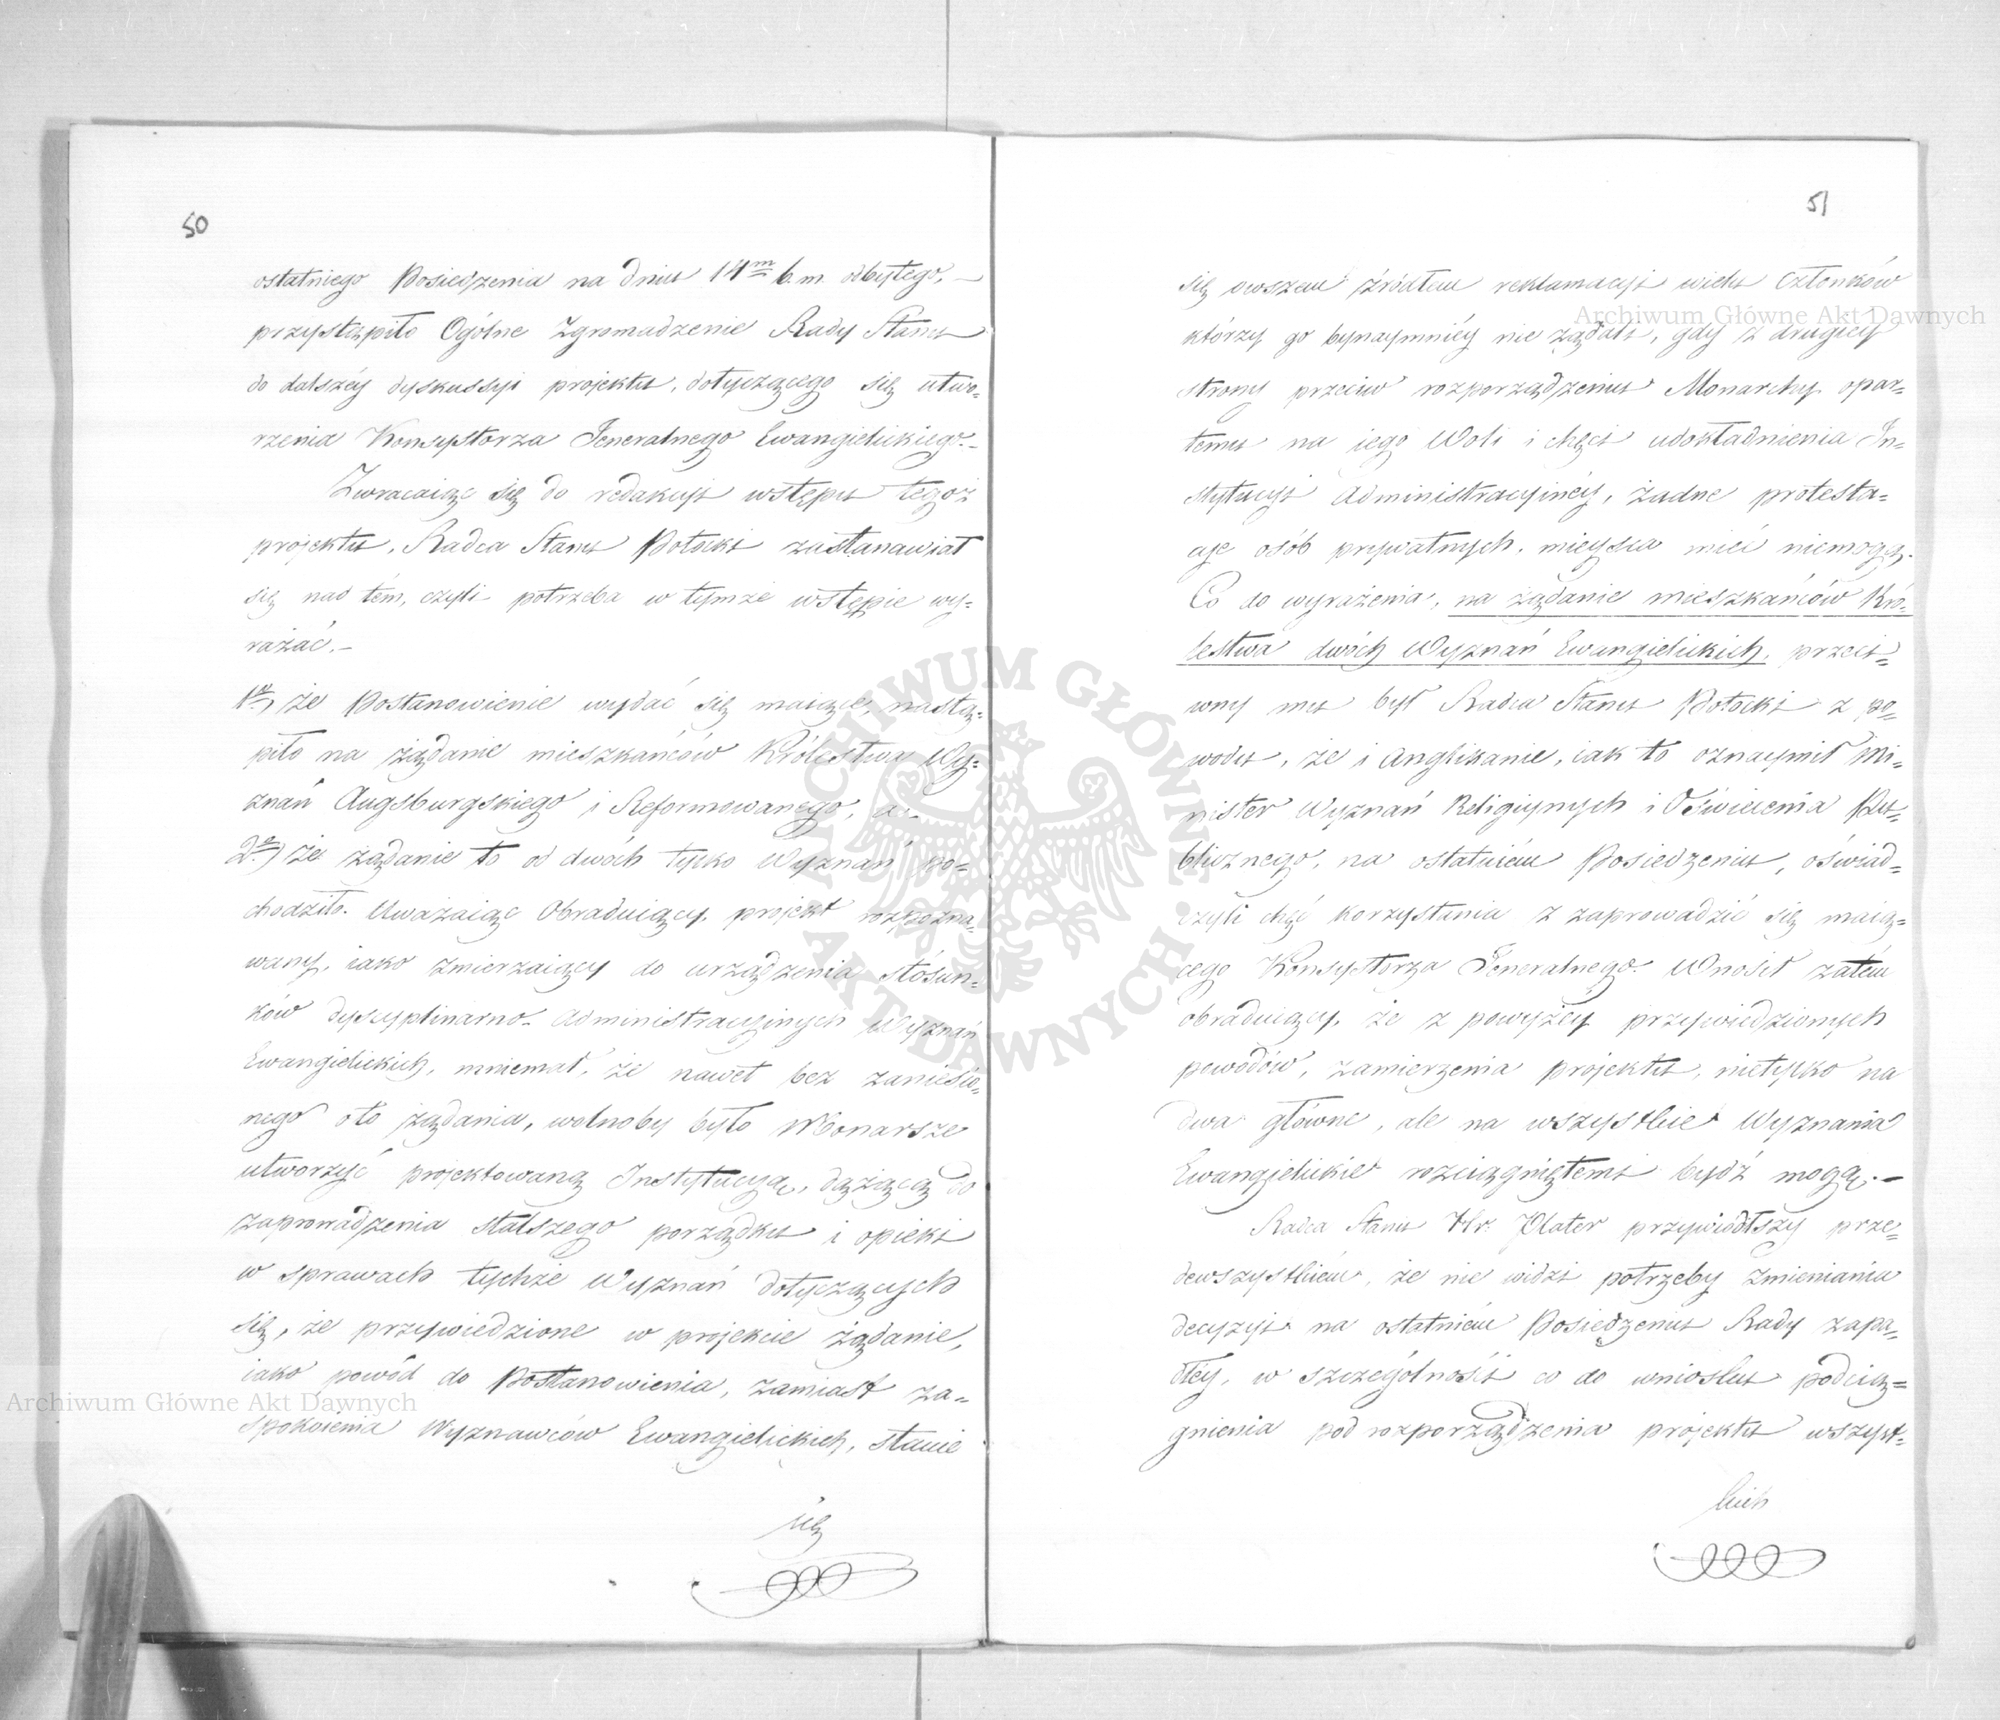 50
ostatniego Posiedzenia na dniu 14m b. m. odbytego, —
przystąpiło Ogólne Zgromadzenie Rady Stanu
do dalszéy dyskussyi projektu, dotyczącego się utwo-
rzenia Konsystorza Jeneralnego Ewangielickiego. —
Zwracaiąc się do redakcyi wstępu tegoż
projektu, Radca Stanu Potocki zastanawiał
się nad tém, czyli potrzeba w tymże wstępie wy-
rażać. —
1e) że Postanowienie wydać się maiące, nastą-
piło na żądanie mieszkańców Królestwa Wy-
znań Augsburgskiego i Reformowanego, a.
2e) że żądanie to od dwóch tylko Wyznań po-
chodziło. Uważaiąc Obraduiący, projekt rozpozna-
wany, iako zmierzaiący do urządzenia stósun-
ków dyscyplinarno-Administracyinych Wyznań
Ewangielickich, mniemał, że nawet bez zaniesio-
nego oto żądania, wolnoby było Monarsze
utworzyć projektowaną Instytucyą, dążącą do
zaprowadzenia stalszego porządku i opieki
w sprawach tychże Wyznań dotyczących
się, że przywiedzione w projekcie żądanie,
iako powód do Postanowienia, zamiast za-
spokoienia Wyznawców Ewangielickich, stanie
się
51
się owszem źródłem reklamacyi wielu Członków
którzy go bynaymniéy nie żądali, gdy z drugiéy
strony przeciw rozporządzeniu Monarchy opar-
temu na iego Woli i chęci udokładnienia In-
stytucyi Administracyinéy, żadne protesta-
cye osób prywatnych, mieysca mieć niemogą.
Co do wyrażenia, na żądanie mieszkańców Kró-
lestwa dwóch Wyznań Ewangielickich, przeci-
wny mu był Radca Stanu Potocki z po-
wodu, że i Anglikanie, iak to oznaymił Mi-
nister Wyznań Religiynych i Oświecenia Pu-
blicznego, na ostatniém Posiedzeniu, oświad-
czyli chęć korzystania z zaprowadzić się maią-
cego Konsystorza Jeneralnego. Wnosił zatém
obraduiący, że z powyżéy przywiedzionych
powodów, zamierzenia projektu, nietylko na
dwa główne, ale na wszystkie Wyznania
Ewangielickie rozciągniętemi bydź mogą. —
Radca Stanu Hr. Plater przywiódłszy prze-
dewszystkiém, że nie widzi potrzeby zmieniania
decyzyi na ostatniém Posiedzeniu Rady zapa-
dłéy, w szczególności co do wniosku podcią-
gnienia pod rozporządzenia projektu wszyst-
kich
Archiwum Główne Akt Dawnych
Archiwum Główne Akt Dawnych
ARCHIWUM GŁÓWNE
AKT DAWNYCH